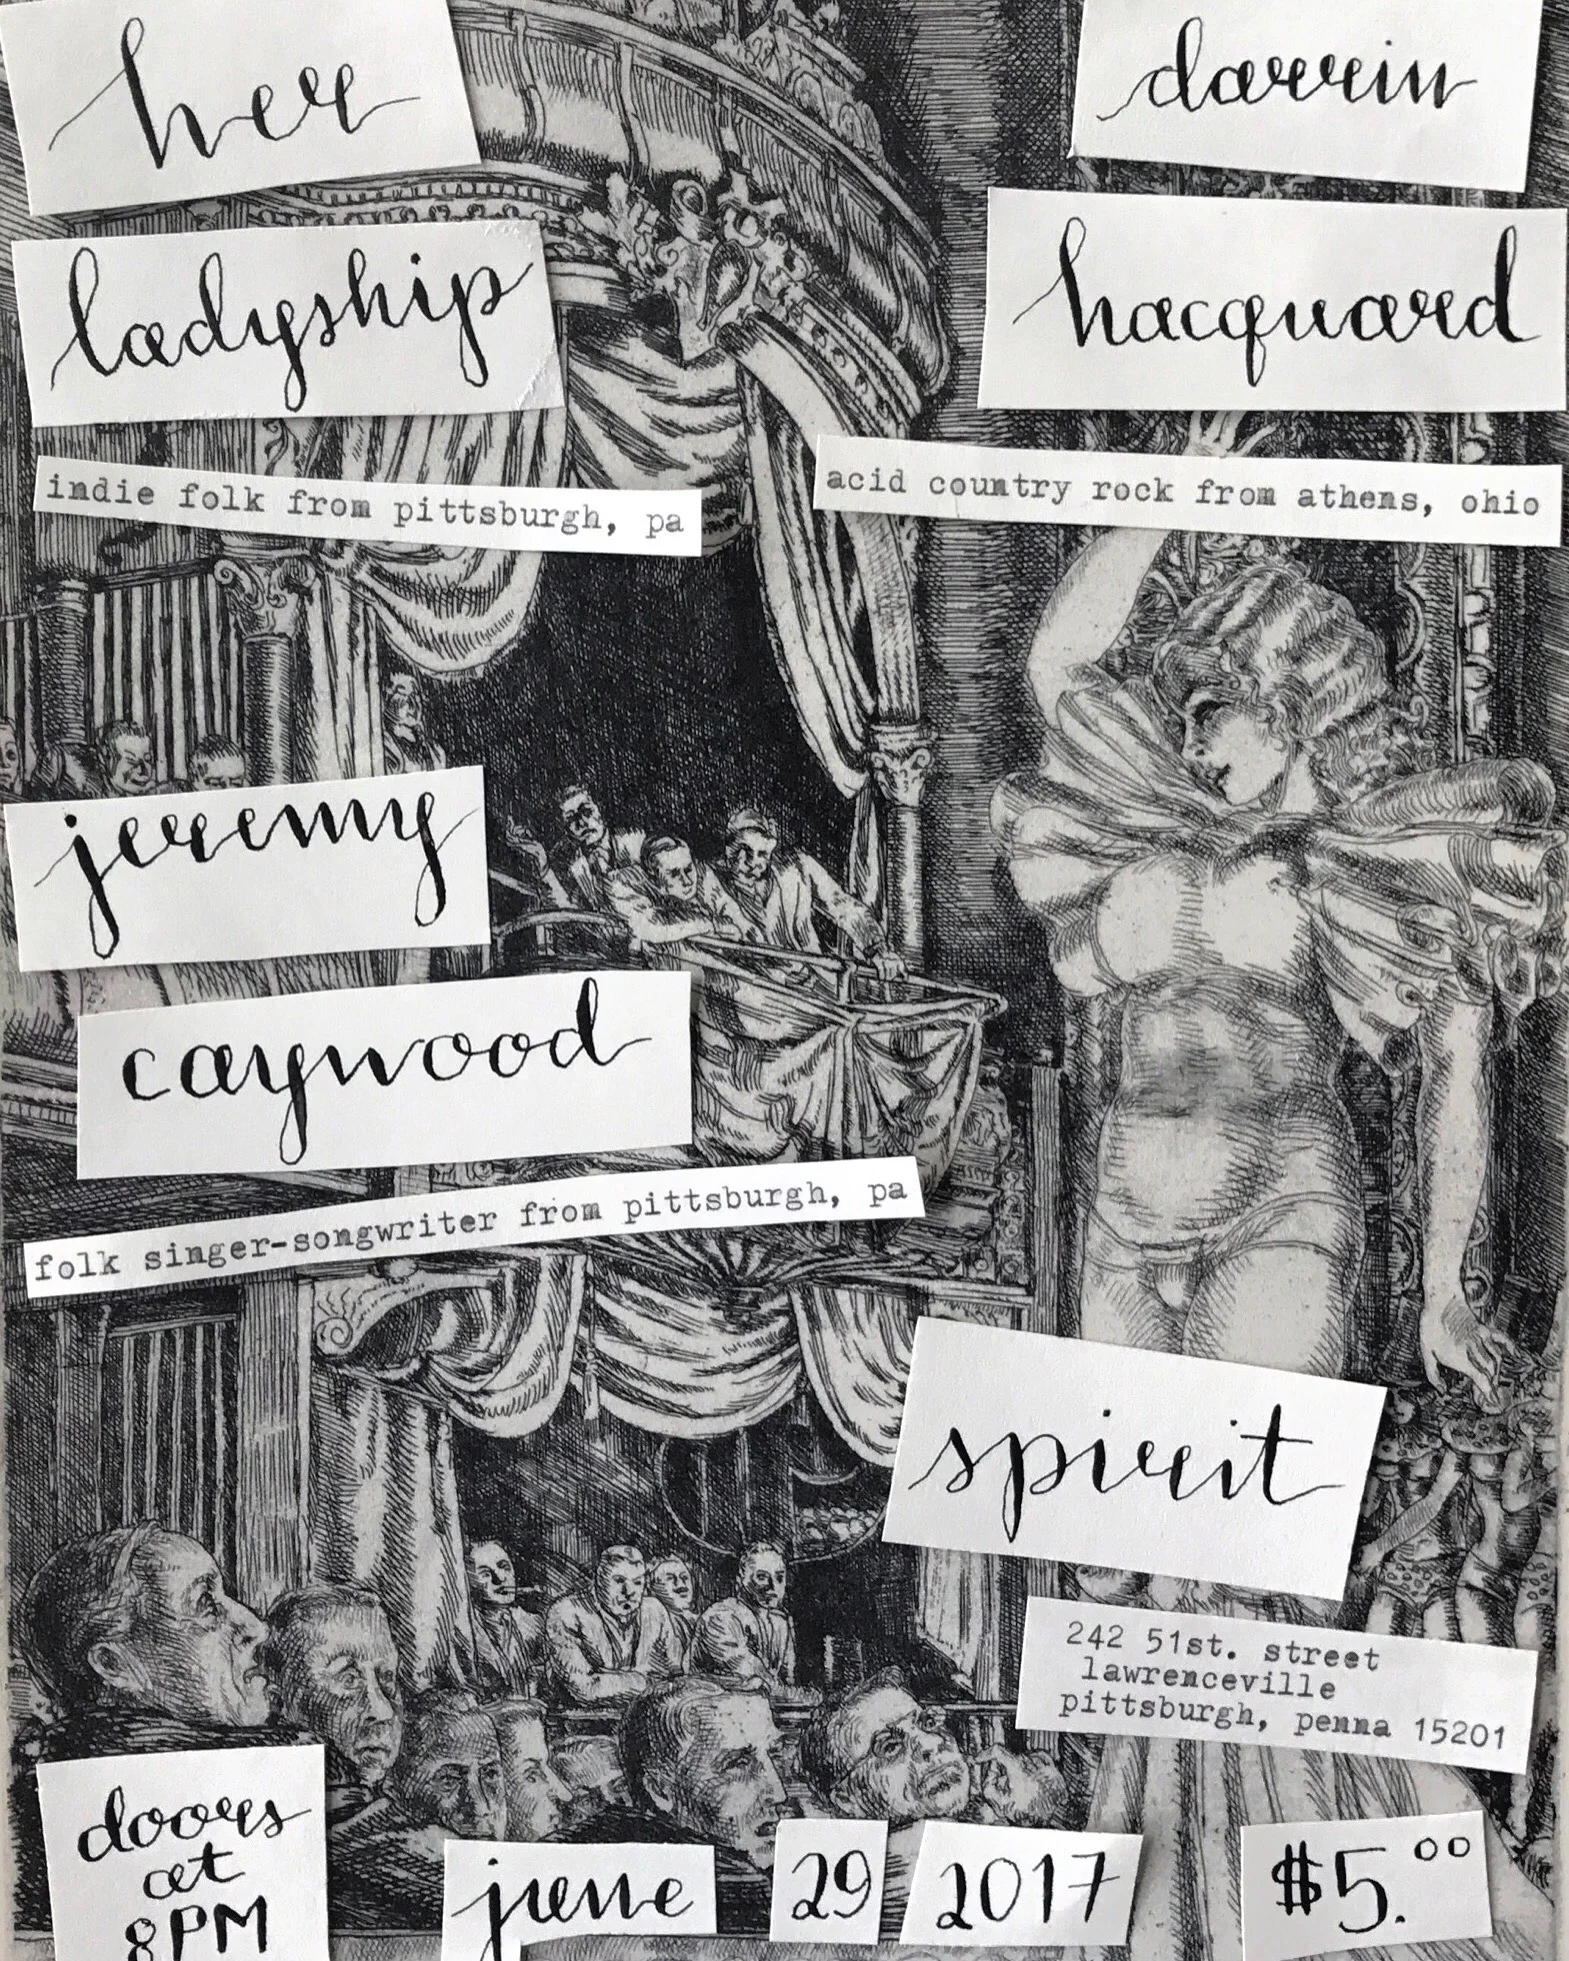 her
ladyship
indie folk from pittsburgh, pa
darrin
hacquard
acid country rock from athens, ohio
jeremy
caywood
folk singer-songwriter from pittsburgh, pa
spirit
242 51st. street
lawrenceville
pittsburgh, penna 15201
doors
at
8PM
june 29 2017 $5.00